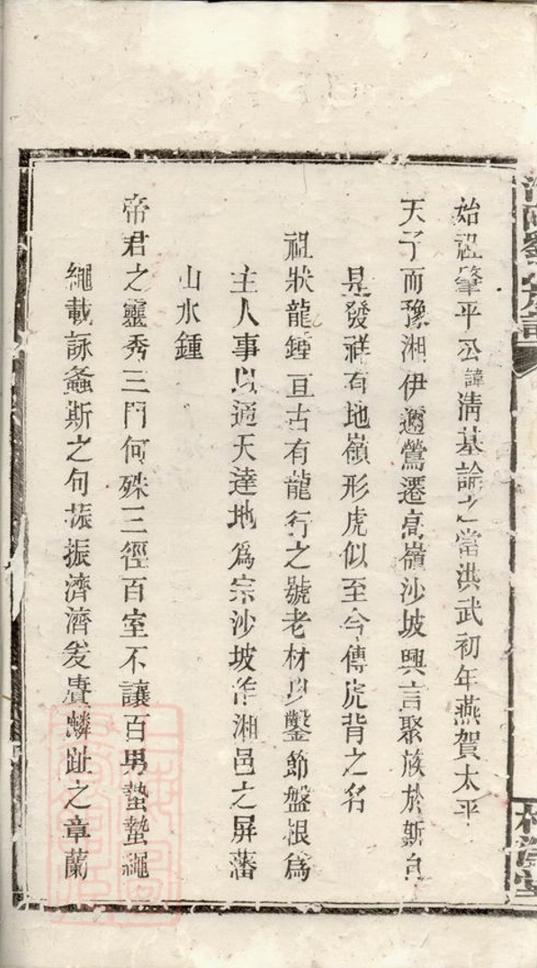 始祖肇平公諱清基論之當洪武初年燕賀太平
天子而豫湘伊邇鶯遷高嶺沙坡興言聚族於斯自
是發祥有地嶺形虎似至今傳虎背之名
祖狀龍鍾亘古有龍行之號老材以鑿節盤根為
主人事以通天達地為宗沙坡作湘邑之屏藩
山水鍾
帝君之靈秀三門何殊三徑百室不讓百男蟄蟄繩
繩載詠螽斯之句振振濟濟爰賡麟趾之章蘭